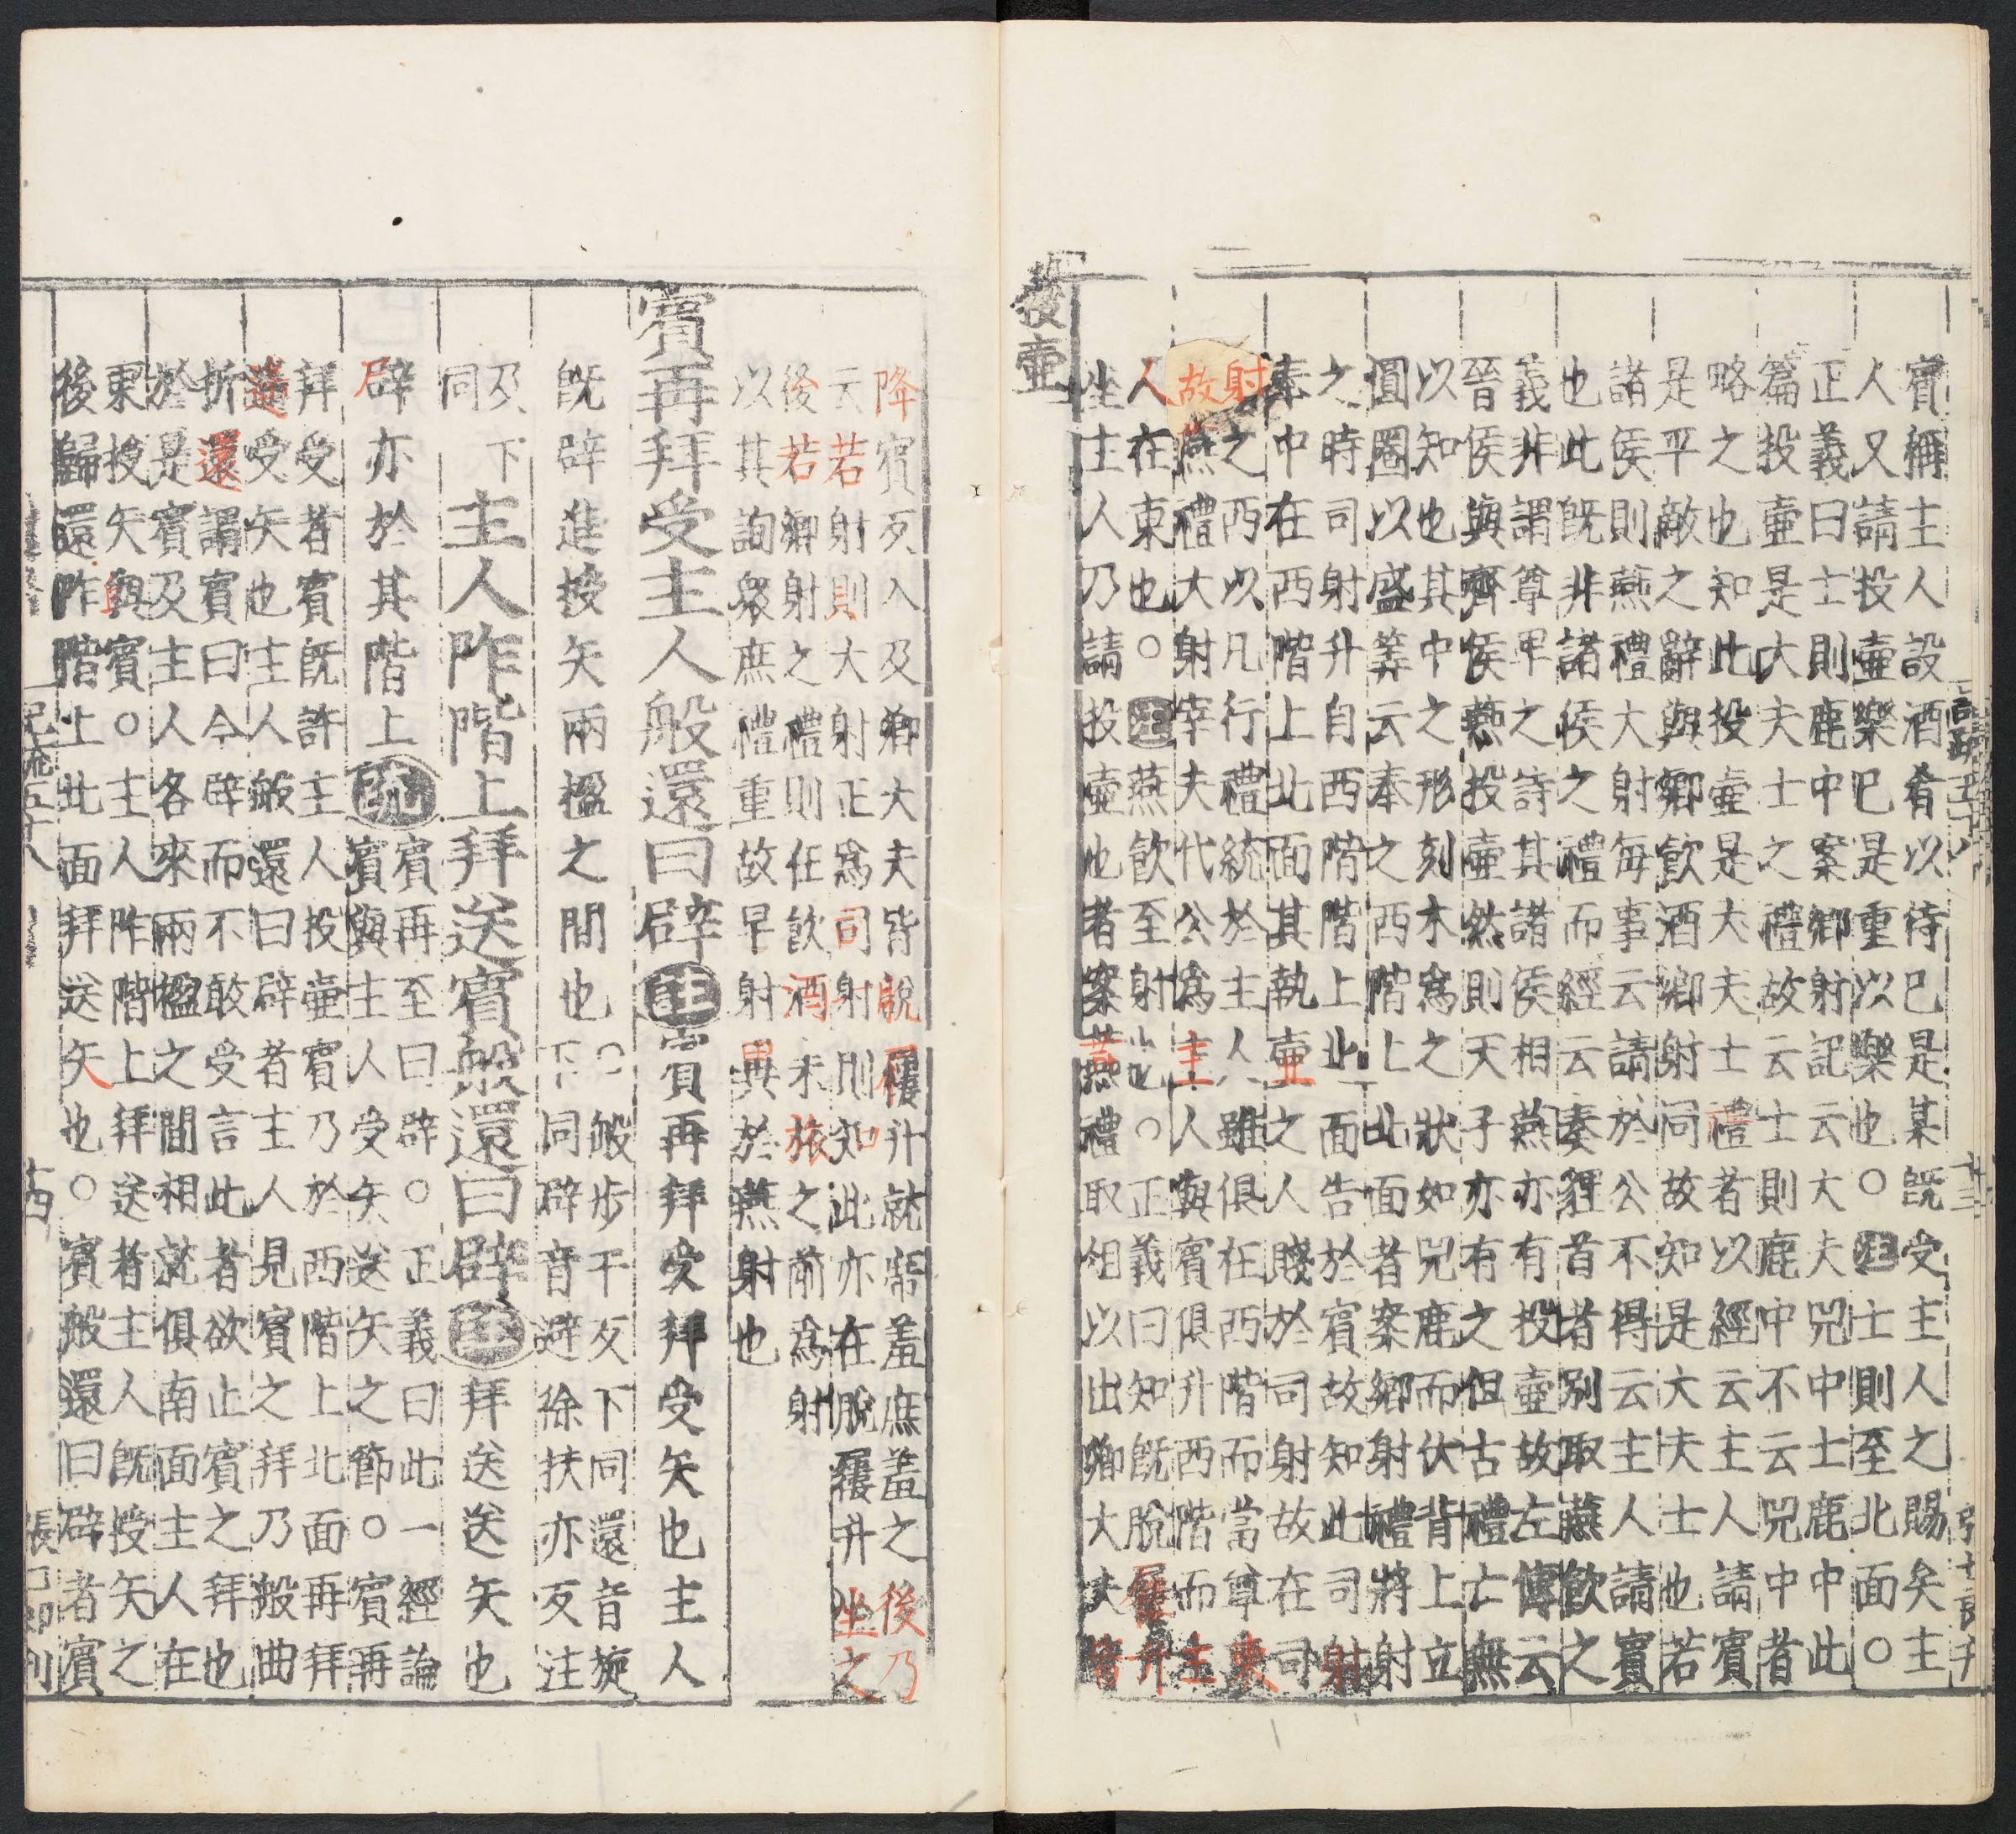 賓稱主人設酒肴以待巳是某旣受主人之賜矣主
人又請投壷樂巳是重以樂也○注士則至北面○
正義曰士則鹿中案鄉射記云大夫兕中士鹿中此
篇投壷是大夫士之禮故云士則鹿中不云兕中者
略之也知此投壷是大夫士禮者以經云主人請賓
是平敵之辭與鄉飲酒鄉射同故知是大夫士也若
諸侯則燕禮大射每事云請於公不得云主人請賓
也此旣非諸侯之禮而經云奏貍首者別取燕飲之
義非謂尊卑之詩其諸侯相燕亦有投壷故左傳云
晉侯與齊侯燕投壷然則天子亦有之但古禮亡無
以知也其中之形刻木爲之狀如兕鹿而伏背上立
圓圈以盛筭云奉之西階上北面者案鄉射禮將射
之時司射升自西階階上北面告於賓故知此司射
奉中在西階上北面其執壷之人賤於司射故在司
射之西以凡行禮統於主人雖俱在西階而當尊衆
故燕禮大射宰夫代公爲主人與賓俱升西階而主
人在東也○注燕飲至射也○正義曰知旣脫屨升
坐主人乃請投壷也者案燕禮取俎以出卿大夫皆
投壷
降賓反入及卿大夫皆說屨升就席羞庶羞之後乃
云若射則大射正爲司射則知此亦在脫屨升坐之
後若鄉射之禮則在飲酒未旅之前爲射
以其詢衆庶禮重故早射異於燕射也
賓再拜受主人般還曰辟注賓再拜受拜受矢也主人
旣辟進授矢兩楹之間也○般步干反下同還音旋
下同辟音避徐扶亦反注
及下同主人阼階上拜送賓般還曰辟注拜送送矢也
辟亦於其階上疏賓再至曰辟○正義曰此一經論
賓與主人受矢送矢之節○賓再
拜受者賓旣許主人投壷賓乃於西階上北面再拜
遥受矢也主人般還曰辟者主人見賓之拜乃般曲
折還謂賓曰今辟而不敢受言此者欲止賓之拜也
於是賓及主人各來兩楹之間相就俱南面主人在
東授矢與賓○主人阼階上拜送者主人旣授矢之
後歸還阼階上北面拜送矢也○賓般還曰辟者賓